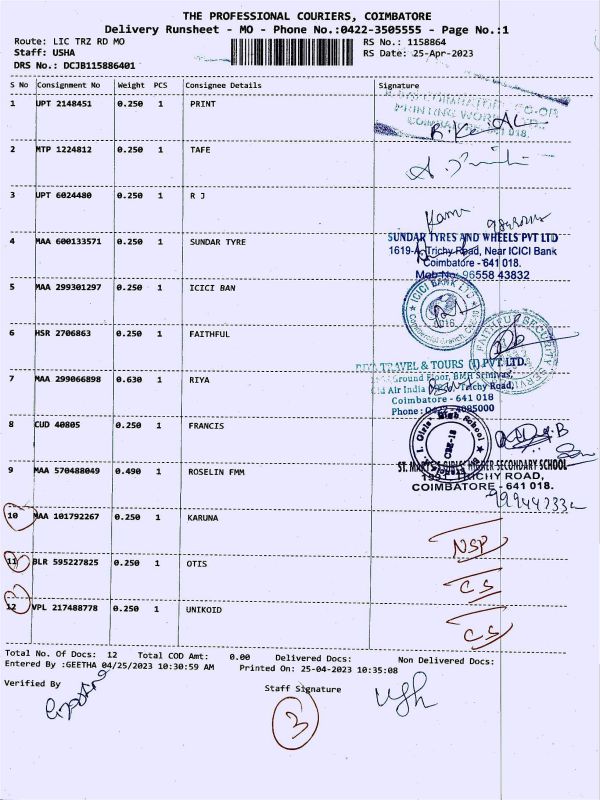 THE PROFESSIONAL COURIERS, COIMBATORE
Delivery Runsheet - MO - Phone No.:0422-3505555 - Page No.:1
Route: LIC TRZ RD MO RS No.: 1158864
Staff: USHA RS Date: 25-Apr-2023
DRS No.: DCJB115886401
S No Consignment No Weight PCS Consignee Details Signature
1 UPT 2148451 0.250 1 PRINT
PRINTING WORKS
2 MTP 1224812 0.250 1 TAFE
3 UPT 6024480 0.250 1 R J
SUNDAR TYRES AND WHEELS PVT LTD
4 MAA 600133571 0.250 1 SUNDAR TYRE 1619-A, Trichy Road, Near ICICI Bank
Coimbatore - 641 018.
Mob No: 96558 43832
5 MAA 299301297 0.250 1 ICICI BAN
ICICI BANK LTD
6 HSR 2706863 0.250 1 FAITHFUL
FAITHFUL SECURITY
TRAVEL & TOURS (I) PVT. LTD.
7 MAA 299066898 0.630 1 RIYA
Ground Floor,
Old Air India Trichy Road,
Coimbatore - 641 018
8 CUD 40805 0.250 1 FRANCIS
9 MAA 570488049 0.490 1 ROSELIN FMM
ST. MARY'S GIRLS HIGHER SECONDARY SCHOOL
TRICHY ROAD,
COIMBATORE - 641 018.
10 MAA 101792267 0.250 1 KARUNA
NSP
11 BLR 595227825 0.250 1 OTIS
CS
12 VPL 217488778 0.250 1 UNIKOID
CS
Total No. Of Docs: 12 Total COD Amt: 0.00 Delivered Docs: Non Delivered Docs:
Entered By :GEETHA 04/25/2023 10:30:59 AM Printed On: 25-04-2023 10:35:08
Verified By Staff Signature
3